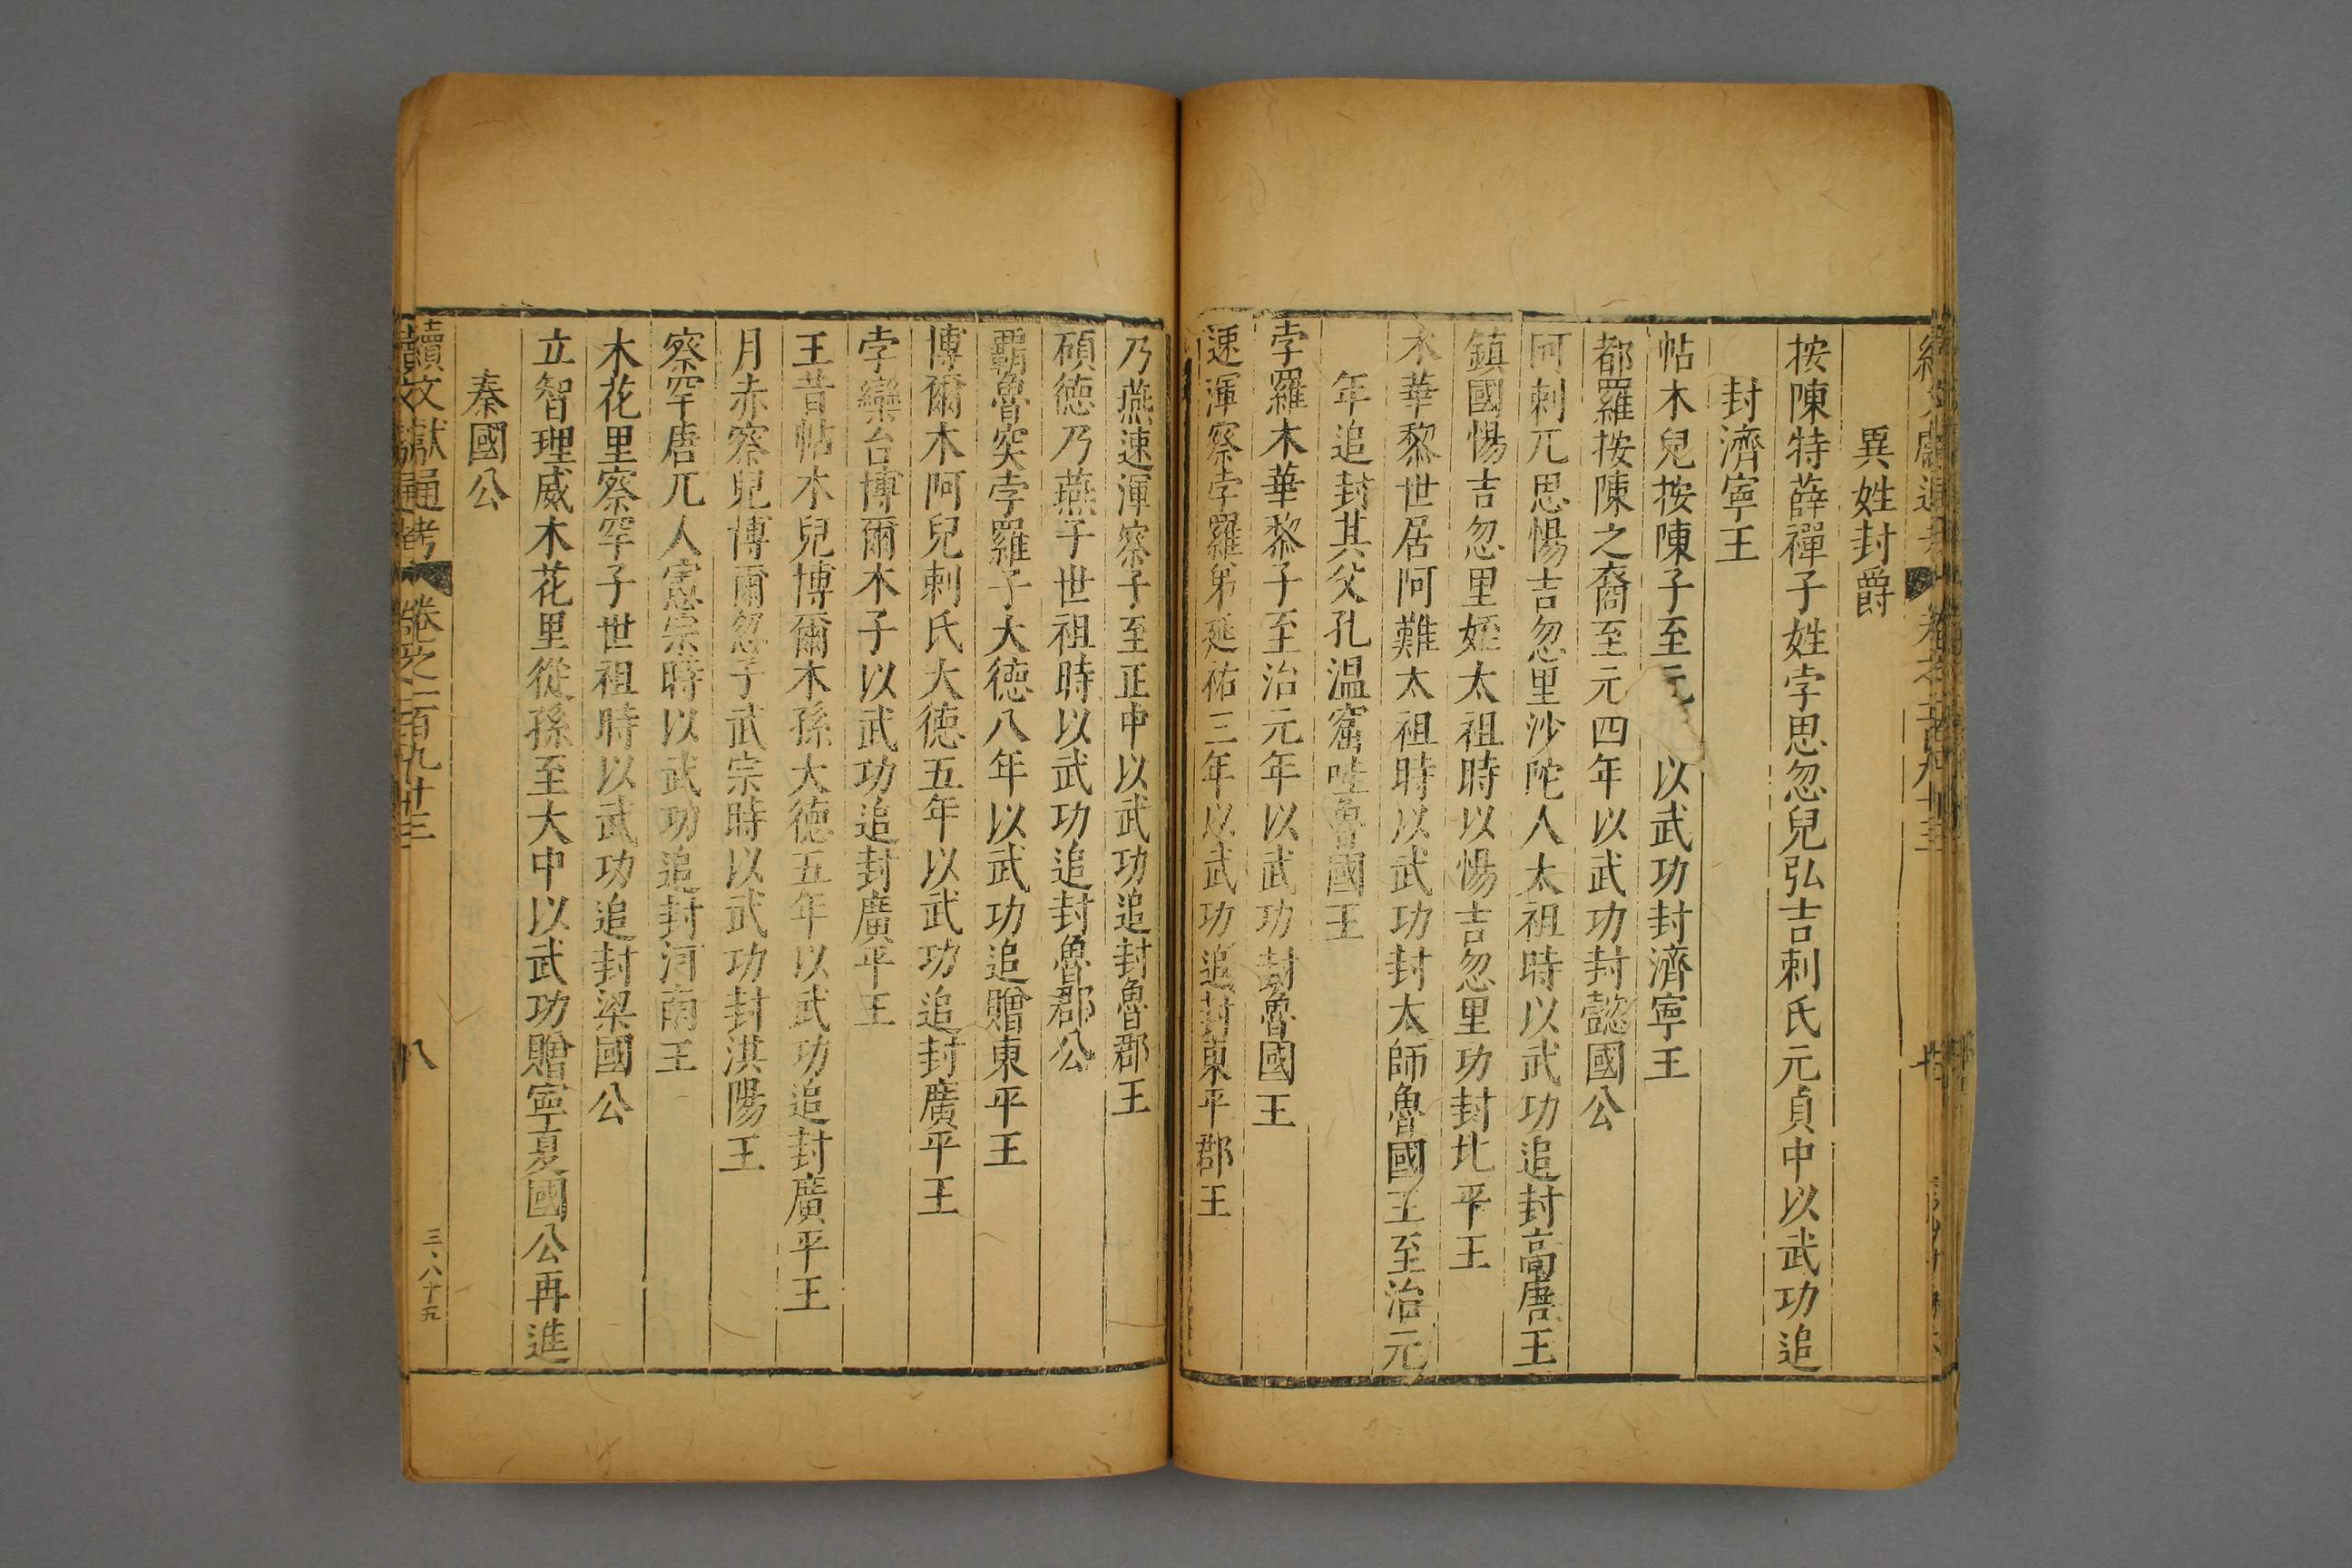 異姓封爵
按陳特薛禪子姓孛思忽兒弘吉剌氏元貞中以武功追
封濟寧王
帖木兒按陳子至元 以武功封濟寧王
都羅按陳之裔至元四年以武功封懿國公
阿剌兀思惕吉忽里沙陀人太祖時以武功追封高唐王
鎮國惕吉忽里姪太祖時以惕吉忽里功封北平王
木華黎世居阿難太祖時以武功封太師魯國王至治元
年追封其父孔温窟哇魯國王
孛羅木華黎子至治元年以武功封魯國王
速渾察孛羅弟延祐三年以武功追封東平郡王
乃燕速渾察子至正中以武功追封魯郡王
碩德乃燕子世祖時以武功追封魯郡公
霸魯突孛羅子大德八年以武功追贈東平王
博爾木阿兒剌氏大德五年以武功追封廣平王
孛欒台博爾木子以武功追封廣平王
王昔帖木兒博爾木孫大德五年以武功追封廣平王
月赤察兒博爾忽子武宗時以武功封淇陽王
察罕唐兀人憲宗時以武功追封河南王
木花里察罕子世祖時以武功追封梁國公
立智理威木花里從孫至大中以武功贈寧夏國公再進
秦國公
續文獻通考 卷之二百九十三 八 三八十五